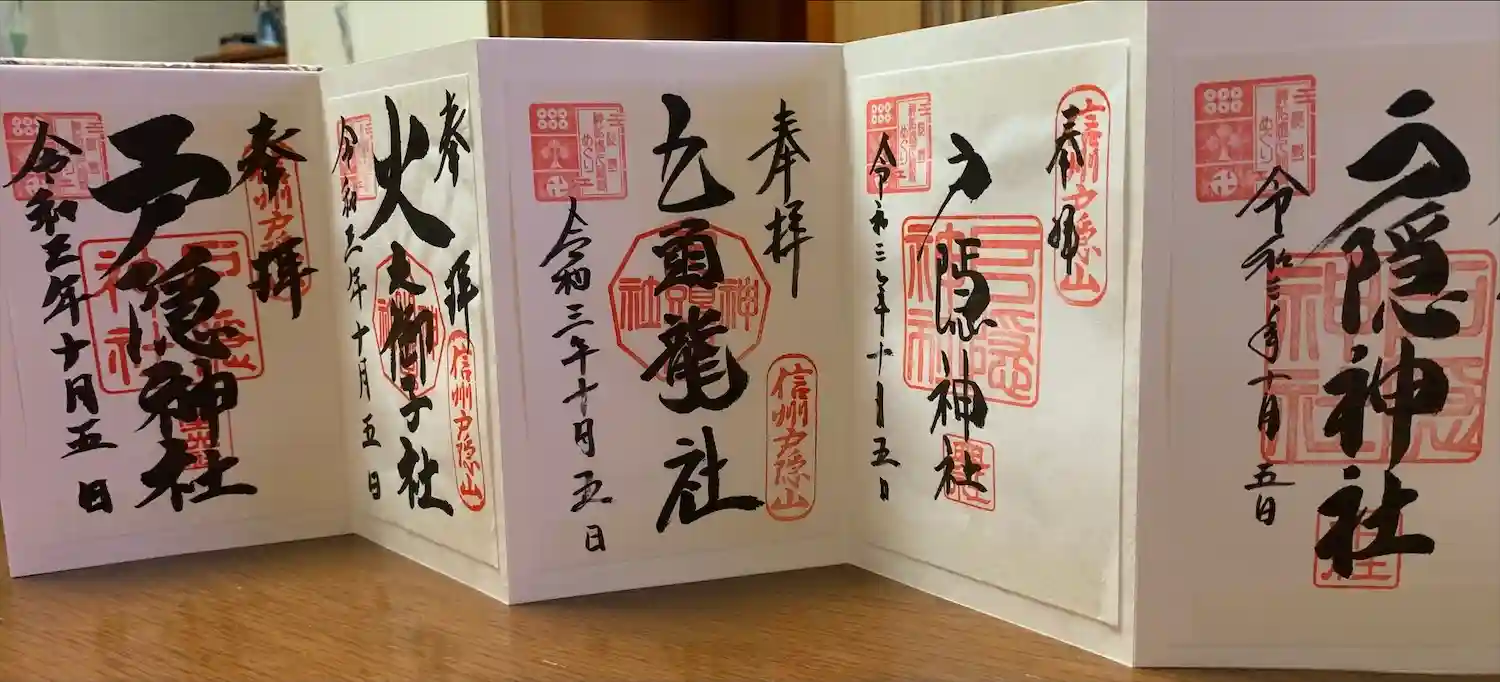 戸隠神社
戸隠神社
令和三年十月五日
めぐり
奉拝
信州戸隠山
戸隠神社
戸隠神社
令和三年十月五日
めぐり
奉拝
信州戸隠山
九頭龍社
令和三年十月五日
めぐり
奉拝
信州戸隠山
火之御子社
令和三年十月五日
奉拝
信州戸隠山
戸隠神社
戸隠神社
令和三年十月五日